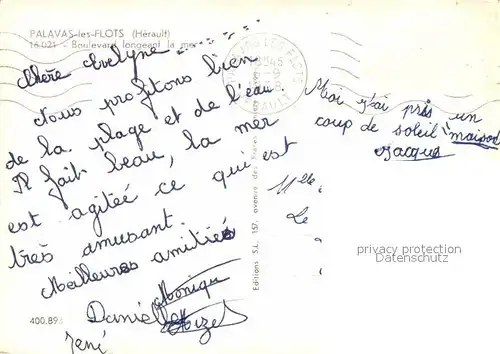 PALAVAS-les-FLOTS (Hérault)
16.021 - Boulevard longeant la mer
Chère Evelyne
Nous profitons bien
de la plage et de l'eau.
Il fait beau, la mer
est agitée ce qui est
très amusant.
Meilleures amitiés
Monique
Danielle
René
Moi j'ai pris un
coup de soleil maison
Jacques
Mlle
Le
Editions S.L. 157, avenue des
400.893
privacy protection
Datenschutz